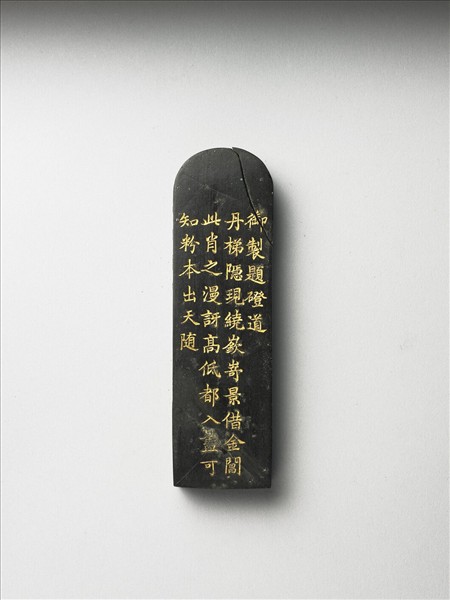 御製題磴道
丹梯隱現繞嶔嵜景借金閶
此肖之漫訝高低都入畫可
知粉本出天随